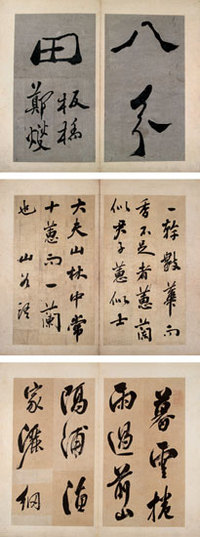 八分
田
板橋
鄭燮
一幹數華而
香不足者蕙蘭
似君子蕙似士
大夫山林中常
十蕙而一蘭
也 山谷語
暮雲捲
雨過前山
隔浦漁
家灑網